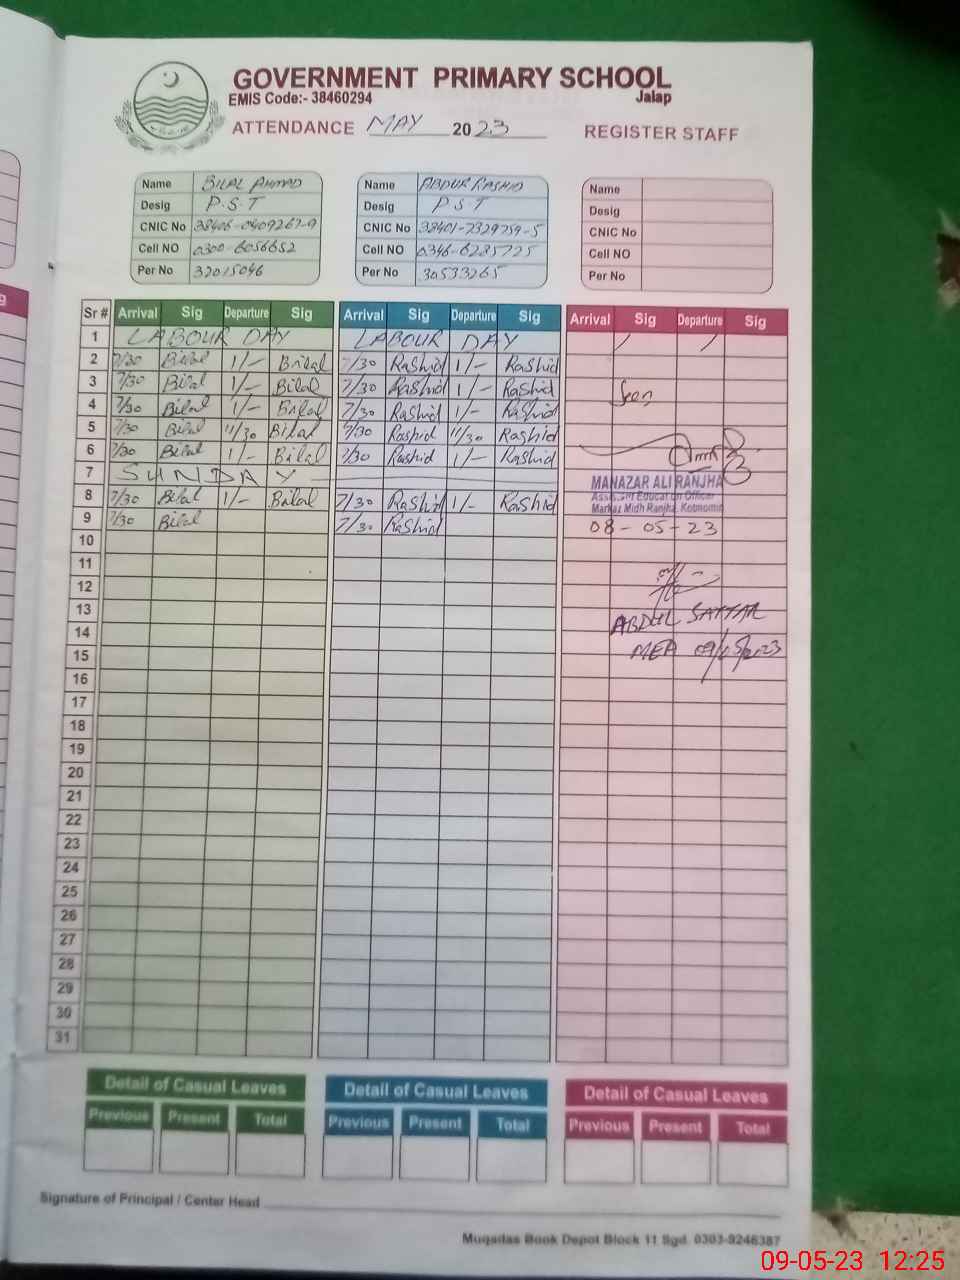 GOVERNMENT PRIMARY SCHOOL
EMIS Code:- 38460294 Jalap
ATTENDANCE MAY 2023 REGISTER STAFF
Name BILAL AHMAD Name ABDUR RASHID Name
Desig P.S.T Desig P.S.T Desig
CNIC No 38406-0409267-9 CNIC No 38401-7329759-5 CNIC No
Cell NO 0300-6056652 Cell NO 0346-6285725 Cell NO
Per No 32015046 Per No 30533265 Per No
g
Sr # Arrival Sig Departure Sig Arrival Sig Departure Sig Arrival Sig Departure Sig
1 LABOUR DAY LABOUR DAY
2 7/30 Bilal 1/- Bilal 7/30 Rashid 1/- Rashid
3 7/30 Bilal 1/- Bilal 7/30 Rashid 1/- Rashid Seen
4 7/30 Bilal 1/- Bilal 7/30 Rashid 1/- Rashid
5 7/30 Bilal 11/30 Bilal 7/30 Rashid 11/30 Rashid
6 7/30 Bilal 1/- Bilal 7/30 Rashid 1/- Rashid
7 SUNDAY MANAZAR ALI RANJHA
8 7/30 Bilal 1/- Bilal 7/30 Rashid 1/- Rashid Assistant Education Officer
Markaz Midh Ranjha, Kotmomin
9 7/30 Bilal 7/30 Rashid 08-05-23
10
11
12
13 ABDUL SATTAR
14
15 MEA 09/05/2023
16
17
18
19
20
21
22
23
24
25
26
27
28
29
30
31
Detail of Casual Leaves Detail of Casual Leaves Detail of Casual Leaves
Previous Present Total Previous Present Total Previous Present Total
Signature of Principal / Center Head
Muqadas Book Depot Block 11 Sgd. 0303-9246387
09-05-23 12:25